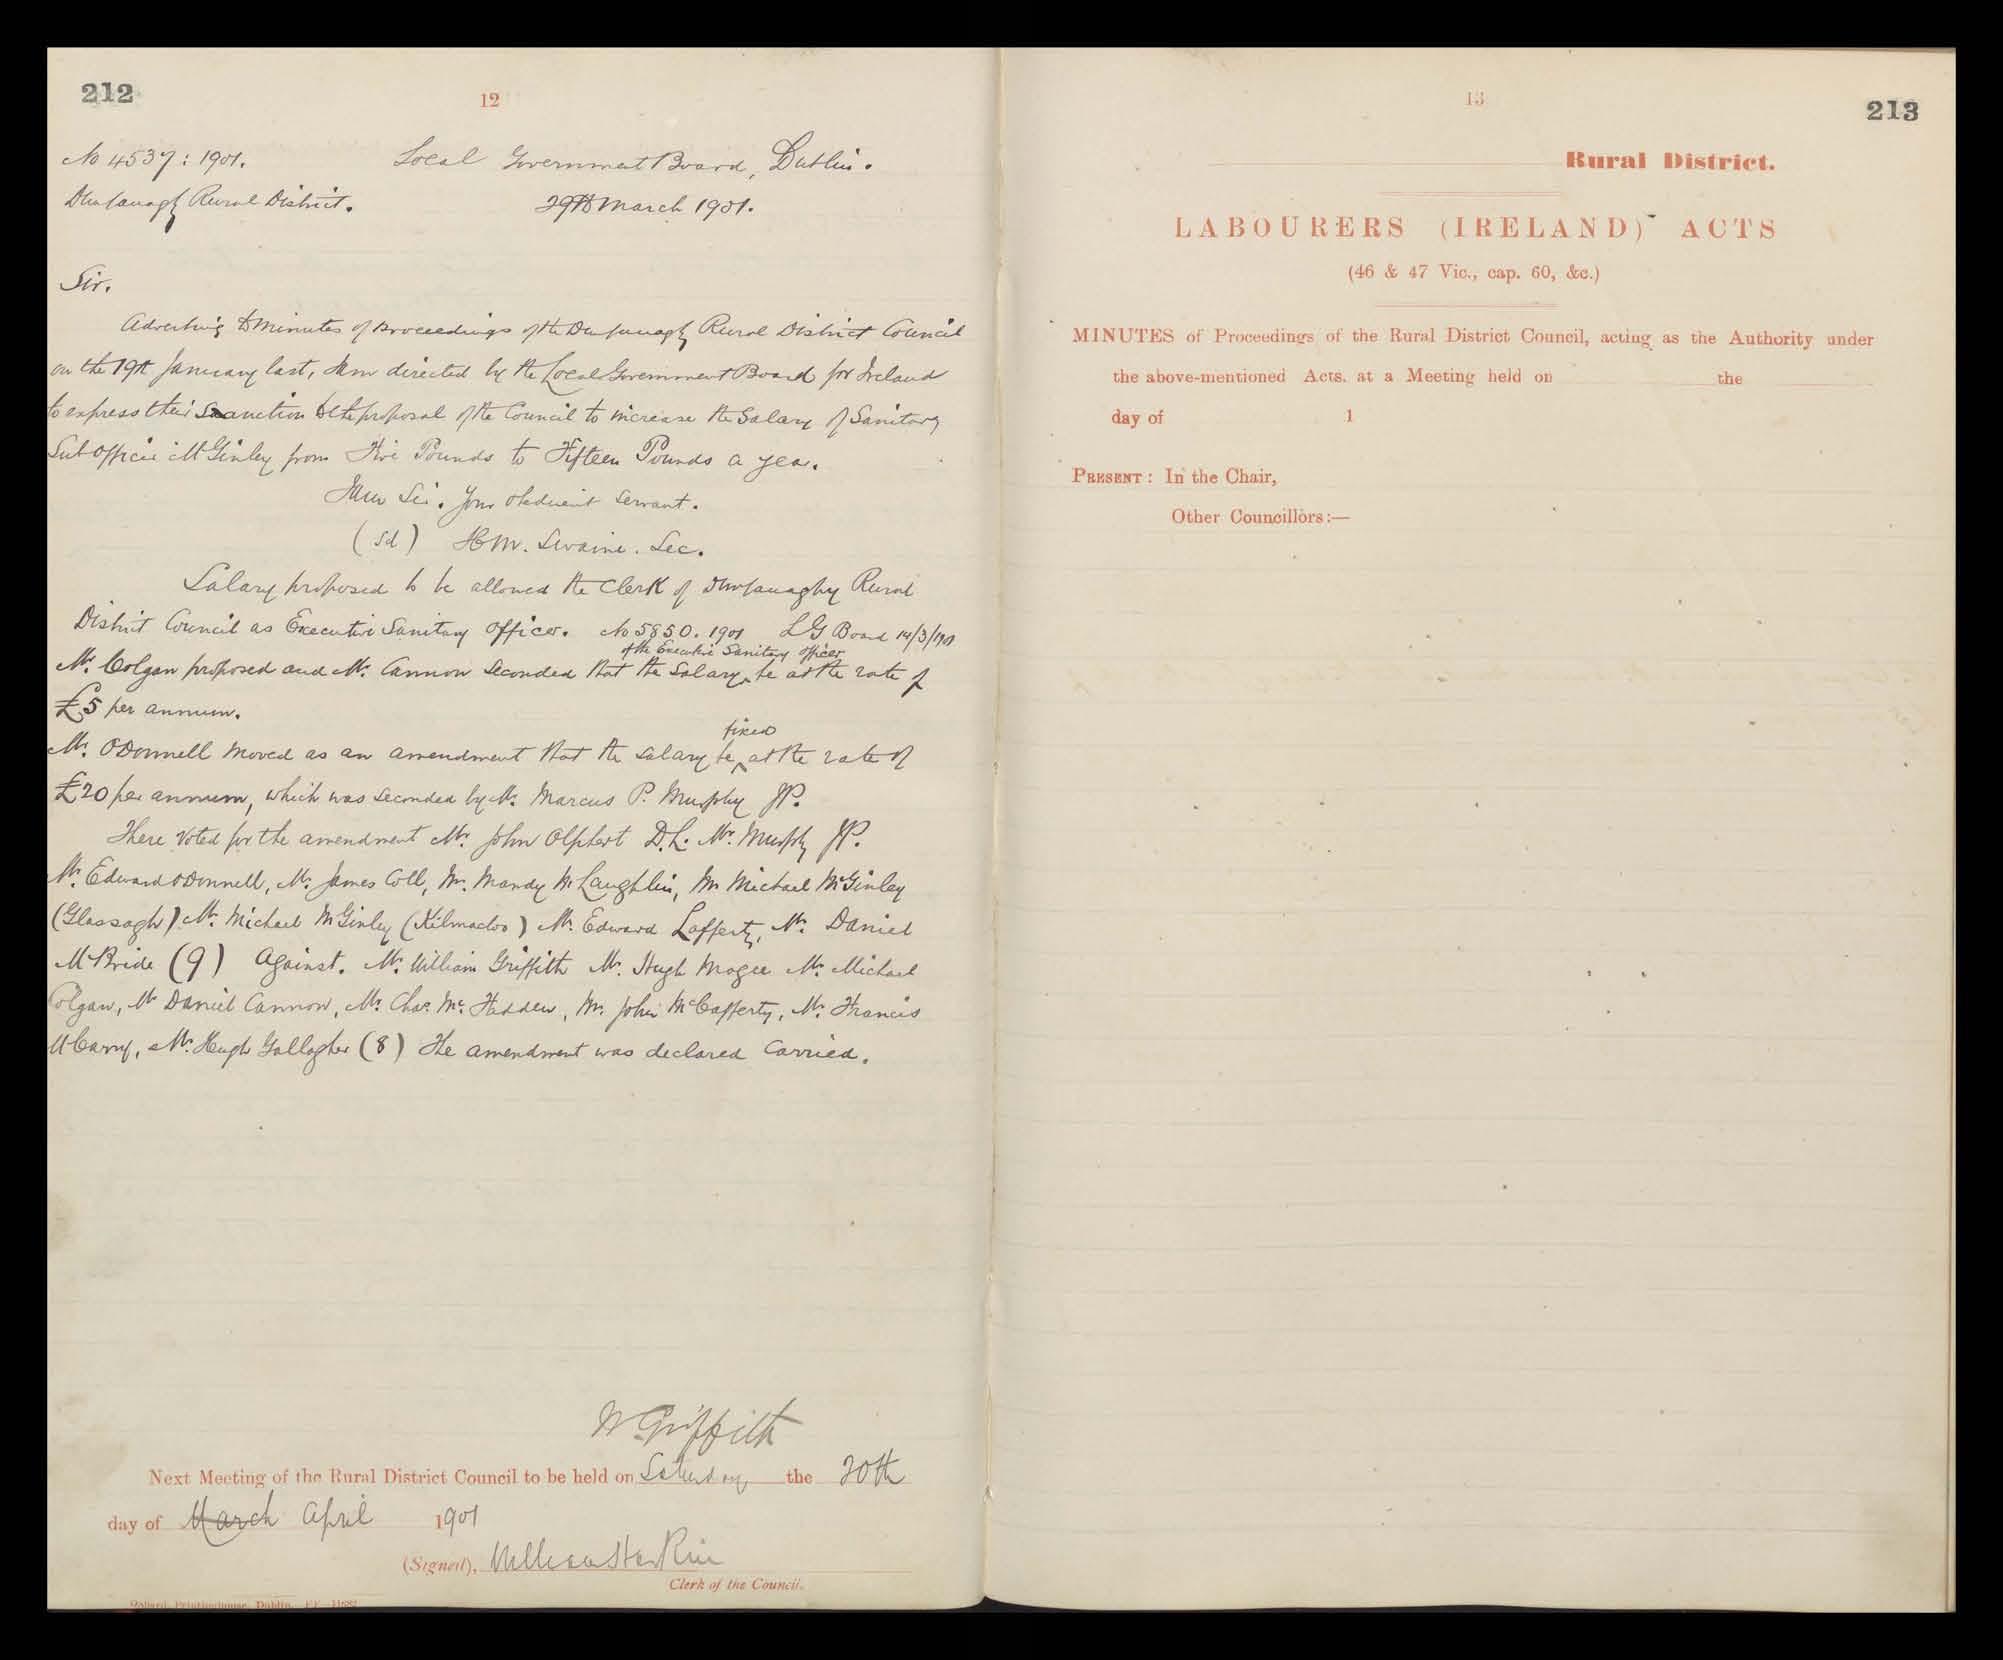 212
12
No 4537: 1901. Local Government Board, Dublin.
Dunfanaghy Rural District. 29th March 1901.
Sir.
Adverting to Minutes of Proceedings of the Dunfanaghy Rural District Council
on the 19th January last, I am directed by the Local Government Board for Ireland
to express their sanction to the proposal of the Council to increase the Salary of Sanitary
Sub Officer McGinley from Five Pounds to Fifteen Pounds a year.
I am Sir. Your obedient servant.
(sd) H M. Swaine. Sec.
Salary proposed to be allowed the Clerk of Dunfanaghy Rural
District Council as Executive Sanitary Officer. No 5850. 1901 LG Board 14/3/1901
of the Executive Sanitary Officer
Mr. Colgan proposed and Mr. Cannon seconded that the Salary ^ be at the rate of
£5 per annum.
fixed
Mr. ODonnell moved as an amendment that the salary be ^ at the rate of
£20 per annum, which was seconded by Mr. Marcus P. Murphy JP.
There voted for the amendment Mr. John Olphert D.L. Mr. Murphy JP.
Mr. Edward ODonnell, Mr. James Coll, Mr. Mandy McLaughlin, Mr Michael McGinley
(Glassagh) Mr. Michael McGinley (Kilmacloo) Mr. Edward Lafferty, Mr. Daniel
McBride (9) Against. Mr. William Griffith Mr. Hugh Magee Mr. Michael
Colgan, Mr Daniel Cannon, Mr. Chas. Mc. Fadden, Mr. John McCafferty, Mr. Francis
McGarvy, Mr. Hugh Gallagher (8) The amendment was declared carried.
W. Griffith
Next Meeting of the Rural District Council to be held on Saturday the 20th
day of March April 1901
(Signed), William Harkin
Clerk of the Council.
13
213
Rural District.
LABOURERS (IRELAND) ACTS
(46 & 47 Vic., cap. 60, &c.)
MINUTES of Proceedings of the Rural District Council, acting as the Authority under
the above-mentioned Acts. at a Meeting held on the
day of 1
PRESENT: In the Chair,
Other Councillors:—